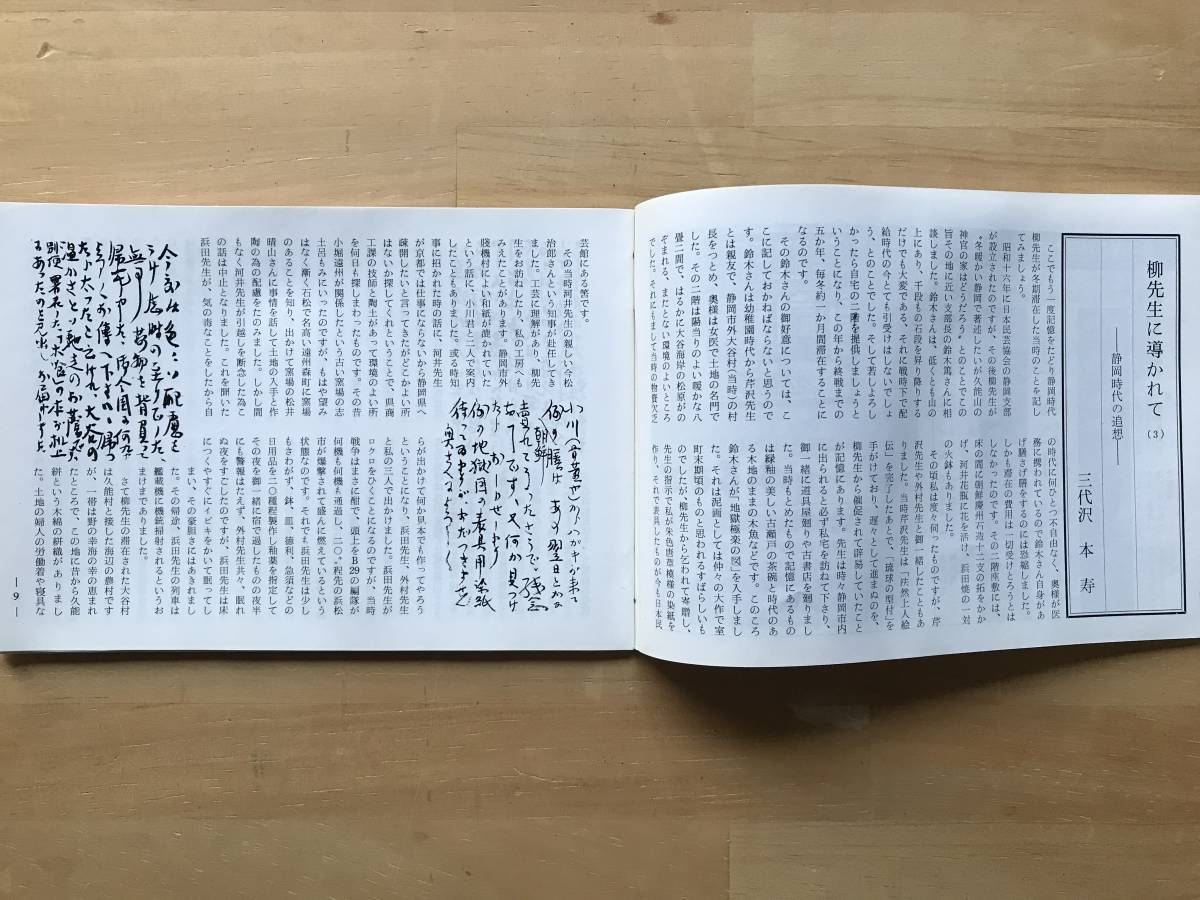 柳先生に導かれて (3)
――静岡時代の追想
三代沢 本寿
ここでもう一度記憶をたどり静岡時代
柳先生が冬期滞在した当時のことを記し
てみましょう。
昭和十六年に日本民芸協会の静岡支部
が設立されたのですが、その後柳先生が
〝冬暖かい静岡で著述したいが久能山の
神官の家はどうだろう〟とのことでこの
旨その地に近い支部長の鈴木篤さんに相
談しました。鈴木さんは、低くとも山の
上にあり、千段もの石段を昇り降りする
だけでも大変である、それに戦時下で配
給時代の今とても引受けはしないでしょ
う、とのことでした。そして若しよろし
かったら自宅の二階を提供しましょうと
いうことになり、この年から終戦までの
五か年、毎冬約一か月間滞在することに
なるのです。
その鈴木さんの御好意については、こ
こに記しておかねばならないと思うので
す。鈴木さんは幼稚園時代から芹沢先生
とは親友で、静岡市外大谷村(当時)の村
長をつとめ、奥様は女医で土地の名門で
した。その二階は陽当りのよい暖かな八
畳二間で、はるかに大谷海岸の松原がの
ぞまれる、またとない環境のよいところ
でした。それにもまして当時の物資欠乏
の時代に何ひとつ不自由なく、奥様が医
務に携わられているので鈴木さん自身があ
げ膳さげ膳をするのには恐縮しました。
しかも滞在の費用は一切受けとろうとは
しなかったのです。その二階座敷には、
床の間に朝鮮慶州石造十二支の拓をかか
げ、河井花瓶に花を活け、浜田焼の一対
の火鉢もありました。
その頃私は度々伺ったものですが、芹
沢先生や外村先生と御一緒したこともあ
りました。当時芹沢先生は「法然上人絵
伝」を完了したあとで、「琉球の型付」を
手がけており、遅々として進まぬのを、
柳先生から催促されて辟易していたこと
が記憶にあります。先生は時々静岡市内
に出られると必ず私宅を訪ねて下さり、
御一緒に道具屋廻りや古書店を廻りまし
た。当時もとめたもので記憶にあるもの
は緑釉の美しい古瀬戸の茶碗と時代のあ
る木地のままの木魚などです。このころ
鈴木さんが「地獄極楽の図」を入手しまし
た。それは泥画としては仲々の大作で室
町末期頃のものと思われるすばらしいも
のでしたが、柳先生から乞われて寄贈し、
先生の指示で私が朱色唐草模様の染紙を
作り、それで表具したものが今も日本民
芸館にある筈です。
その当時河井先生の親しい今松
治郎さんという知事が赴任してき
ました。工芸に理解があり、柳先
生をお訪ねしたり、私の工房へも
みえたことがあります。静岡市外
賤機村によい和紙が漉かれていた
という話に、小川君と二人で案内
したこともありました。或る時知
事に招かれた時の話に、河井先生
が京都では仕事にならないから静岡県へ
疎開したいと言ってきたがどこかよい所
はないか探してくれということで、県商
工課の技師と陶土があって環境のよい所
を何日も探しまわったものです。その昔
小堀遠州が関係したという古い窯場の志
土呂もみにいったのですが、もはや望み
はなく漸く石松で名高い遠州森町に窯場
のあることを知り、出かけて窯場の松井
晴山さんに事情を話して土地の入手と作
陶の為の配慮をたのみました。しかし間
もなく河井先生が引越しを断念した為こ
の話は中止となりました。これを聞いた
浜田先生が、気の毒なことをしたから自
らが出かけて何か見本でも作ってやろう
ということになり、浜田先生、外村先生
と私の三人で出かけました。浜田先生が
ロクロをひくことになるのですが、当時
戦争はまさに酣で、頭上をB29の編隊が
何機も何機も通過し、二〇㌔程先の浜松
市が爆撃されて盛んに燃えているという
状態なのです。それでも浜田先生は少し
もさわがず、鉢、皿、徳利、急須などの
日用品を二〇種程製作し釉薬を指定して
その夜を御一緒に宿で過したものの夜半
にも警報はたえず、外村先生共々、眠れ
ぬ夜をすごしたのですが、浜田先生は床
につくやすぐにイビキをかいて眠ってし
まい、その豪胆さにはあきれまし
た。その帰途、浜田先生の列車は
艦載機に機銃掃射されるというお
まけまでありました。
さて柳先生の滞在された大谷村
は久能村と接した海辺の農村です
が、一帯は野の幸海の幸の恵まれ
たところで、この地に昔から久能
絣という木綿の絣織がありまし
た。土地の婦人の労働着や寝具な
― 9 ―